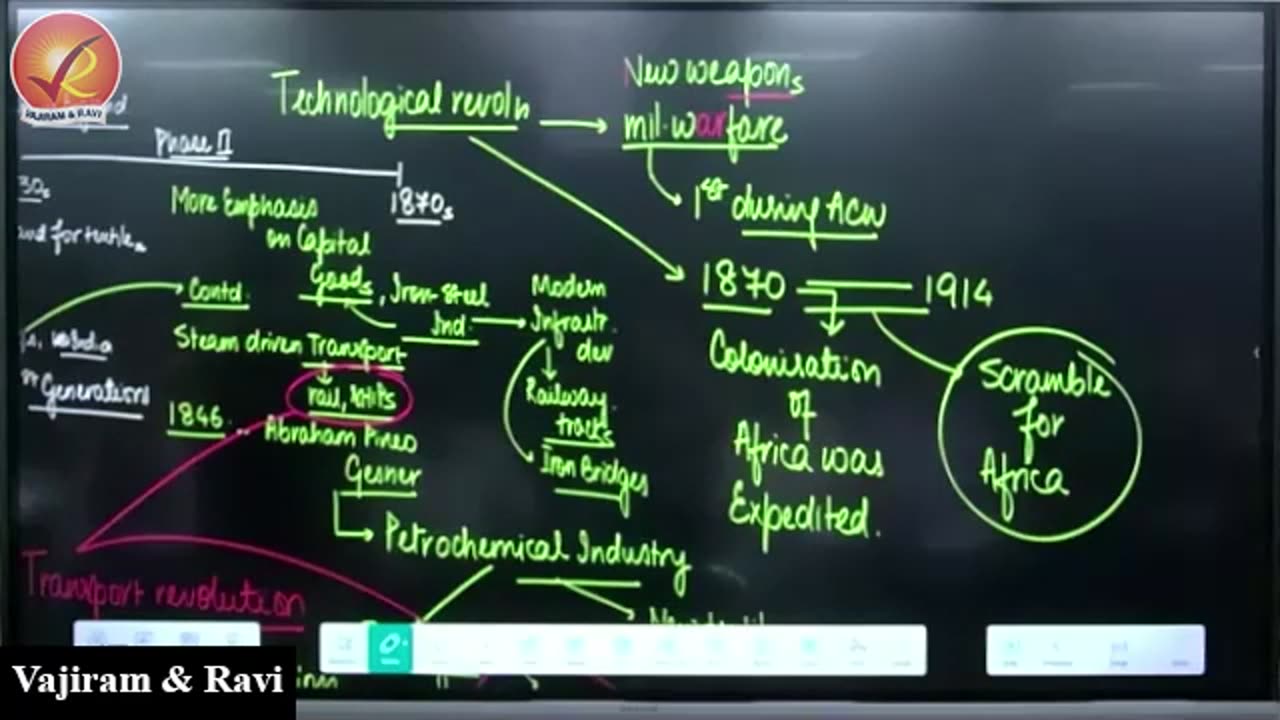 VAJIRAM & RAVI
Technological revoln
New weapons
mil. warfare
1st during ACW
Phase II
30s
1870s
More Emphasis
on Capital
Goods, Iron-Steel
Ind.
and for textiles
Contd.
Steam driven Transport
rail, ships
Modern
Infrastr.
dev
Railway
tracks
Iron Bridges
1870
1914
Colonisation
of
Africa was
Expedited.
Scramble
for
Africa
Generations
1846
Abraham Pineo
Gesner
Petrochemical Industry
Transport revolution
Vajiram & Ravi